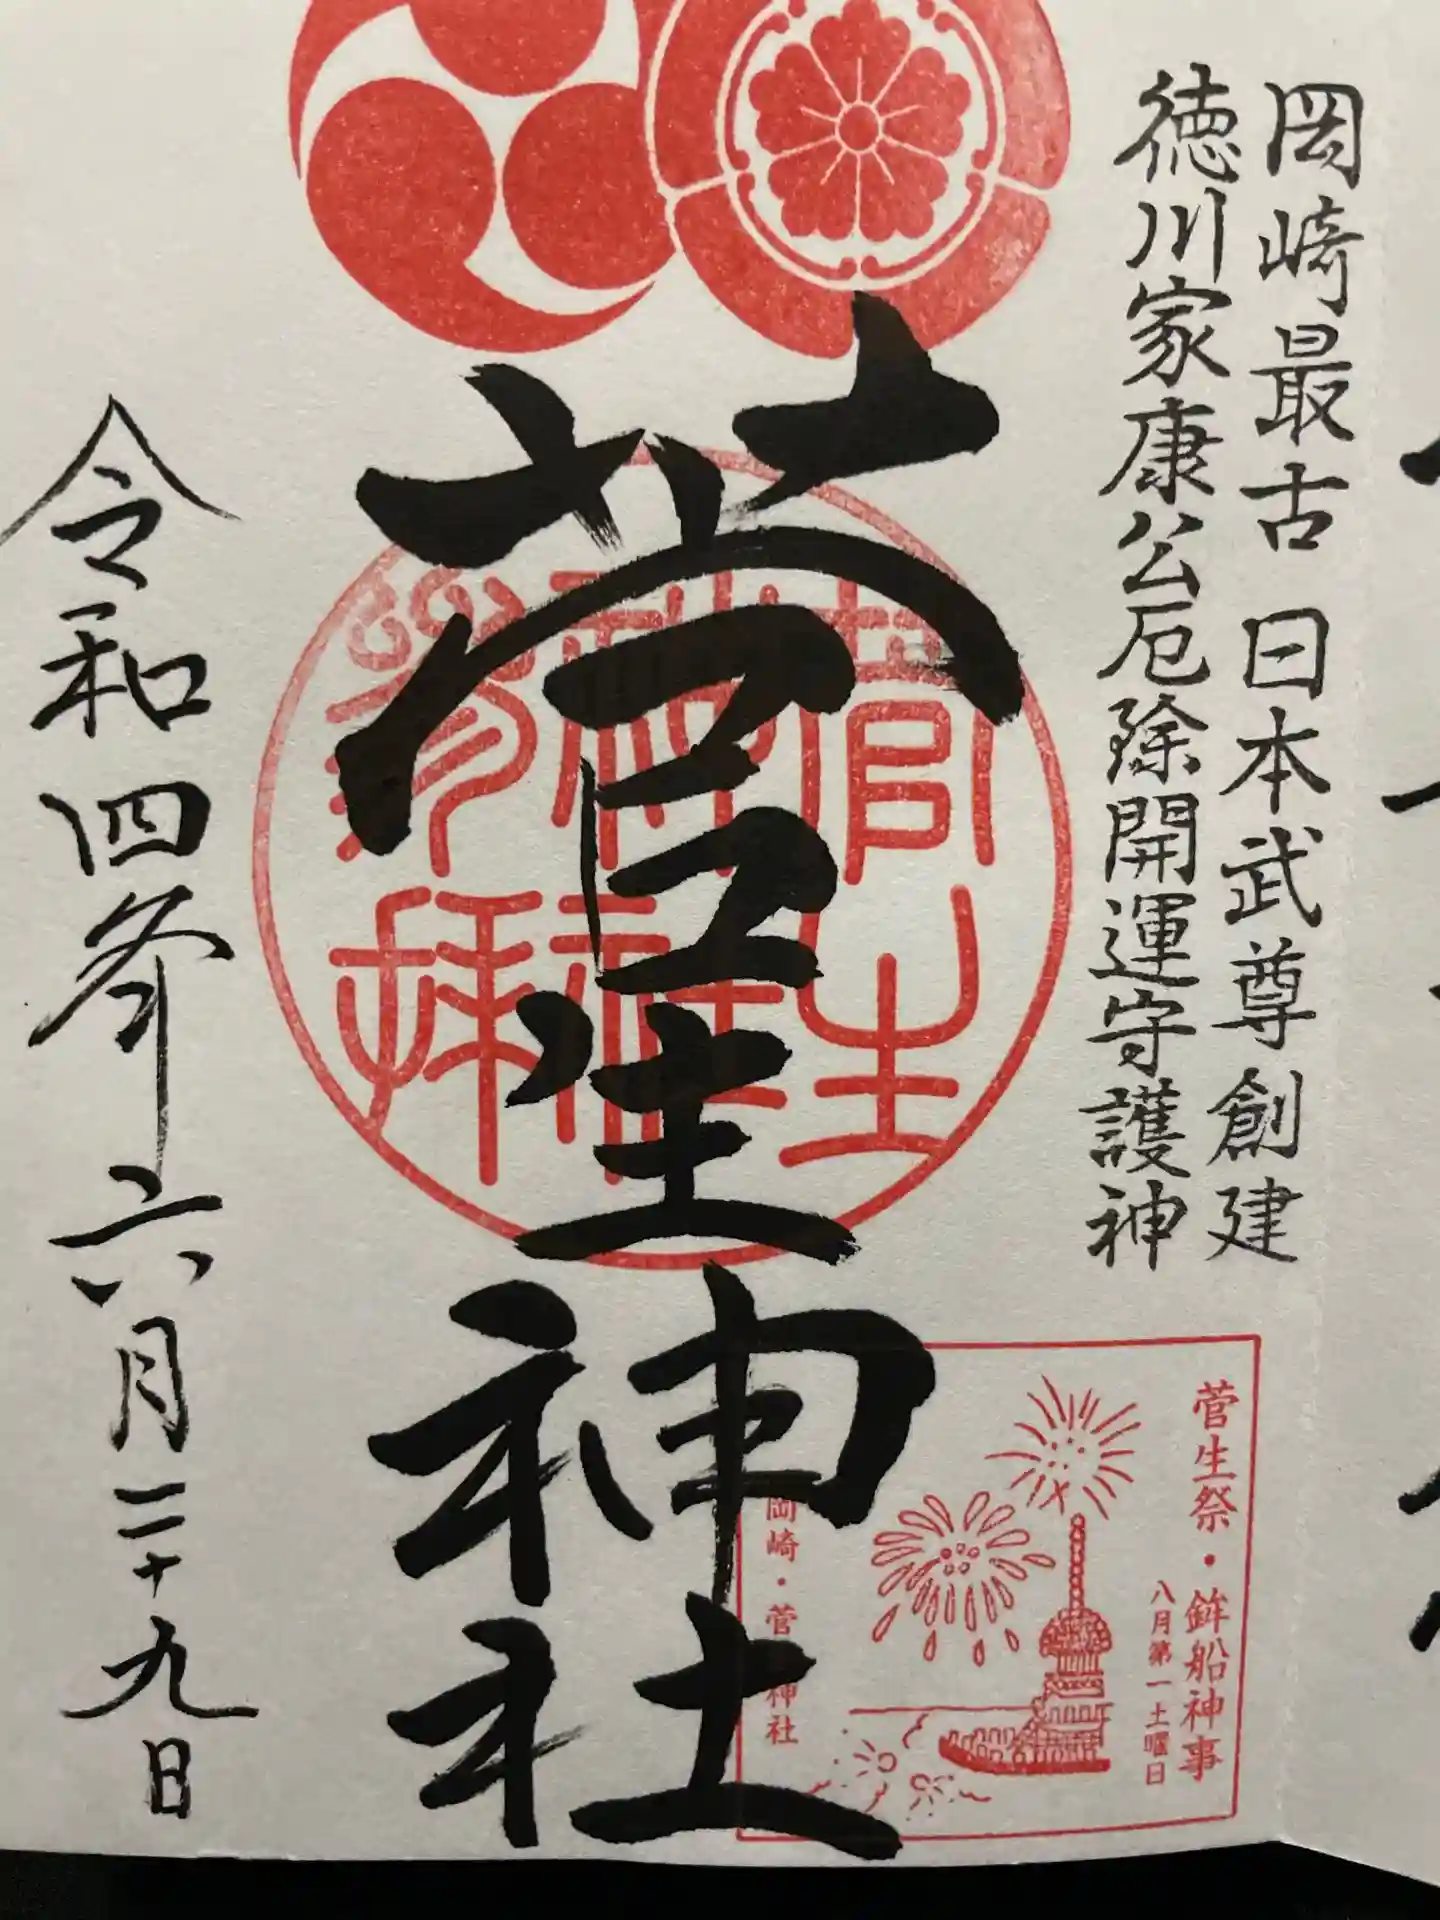 岡崎最古 日本武尊創建
徳川家康公厄除開運守護神
菅生神社
菅生
神社
参拝
菅生祭・鉾船神事
八月第一土曜日
岡崎・菅
神社
令和四年六月二十九日